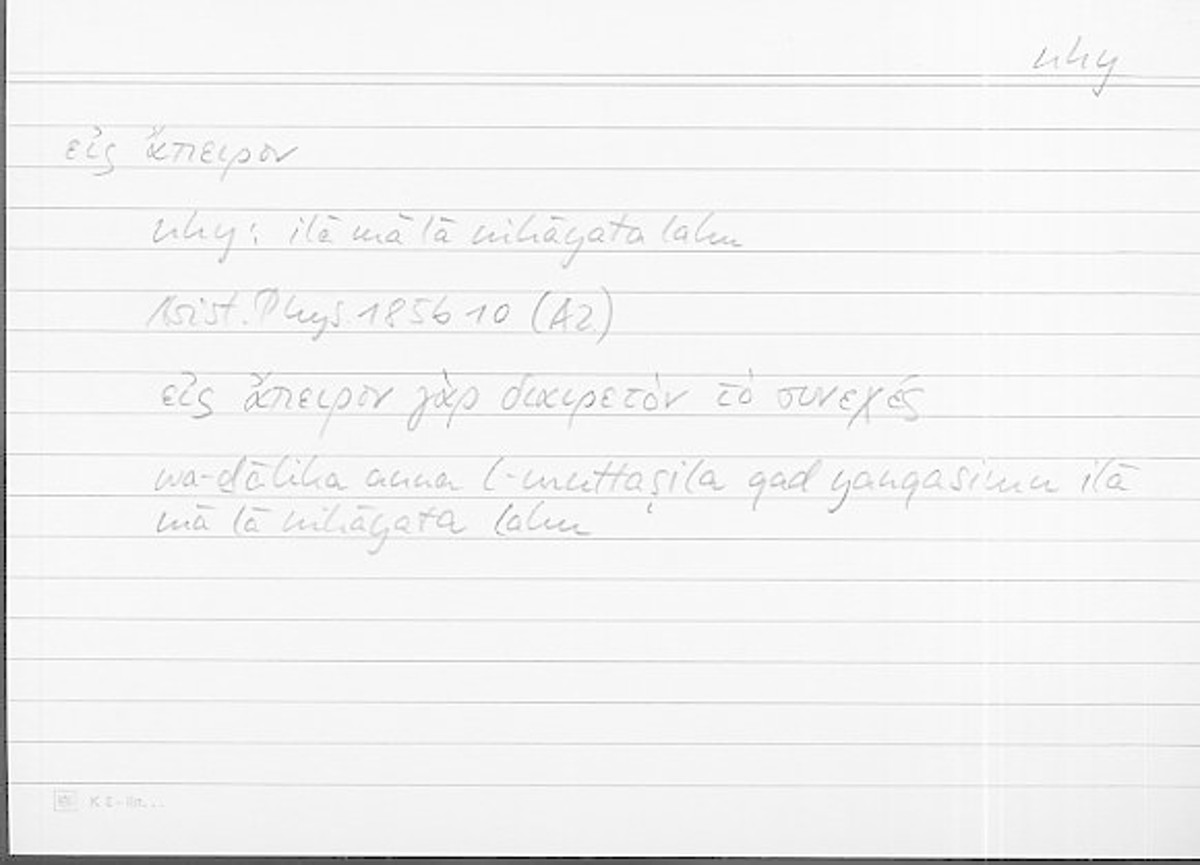 nhy
εἰς ἄπειρον
nhy: ilā mā lā nihāyata lahu
Arist. Phys. 185b10 (A2)
εἰς ἄπειρον γὰρ διαιρετὸν τὸ συνεχές
wa-ḏālika anna l-muttaṣila qad yanqasimu ilā
mā lā nihāyata lahu